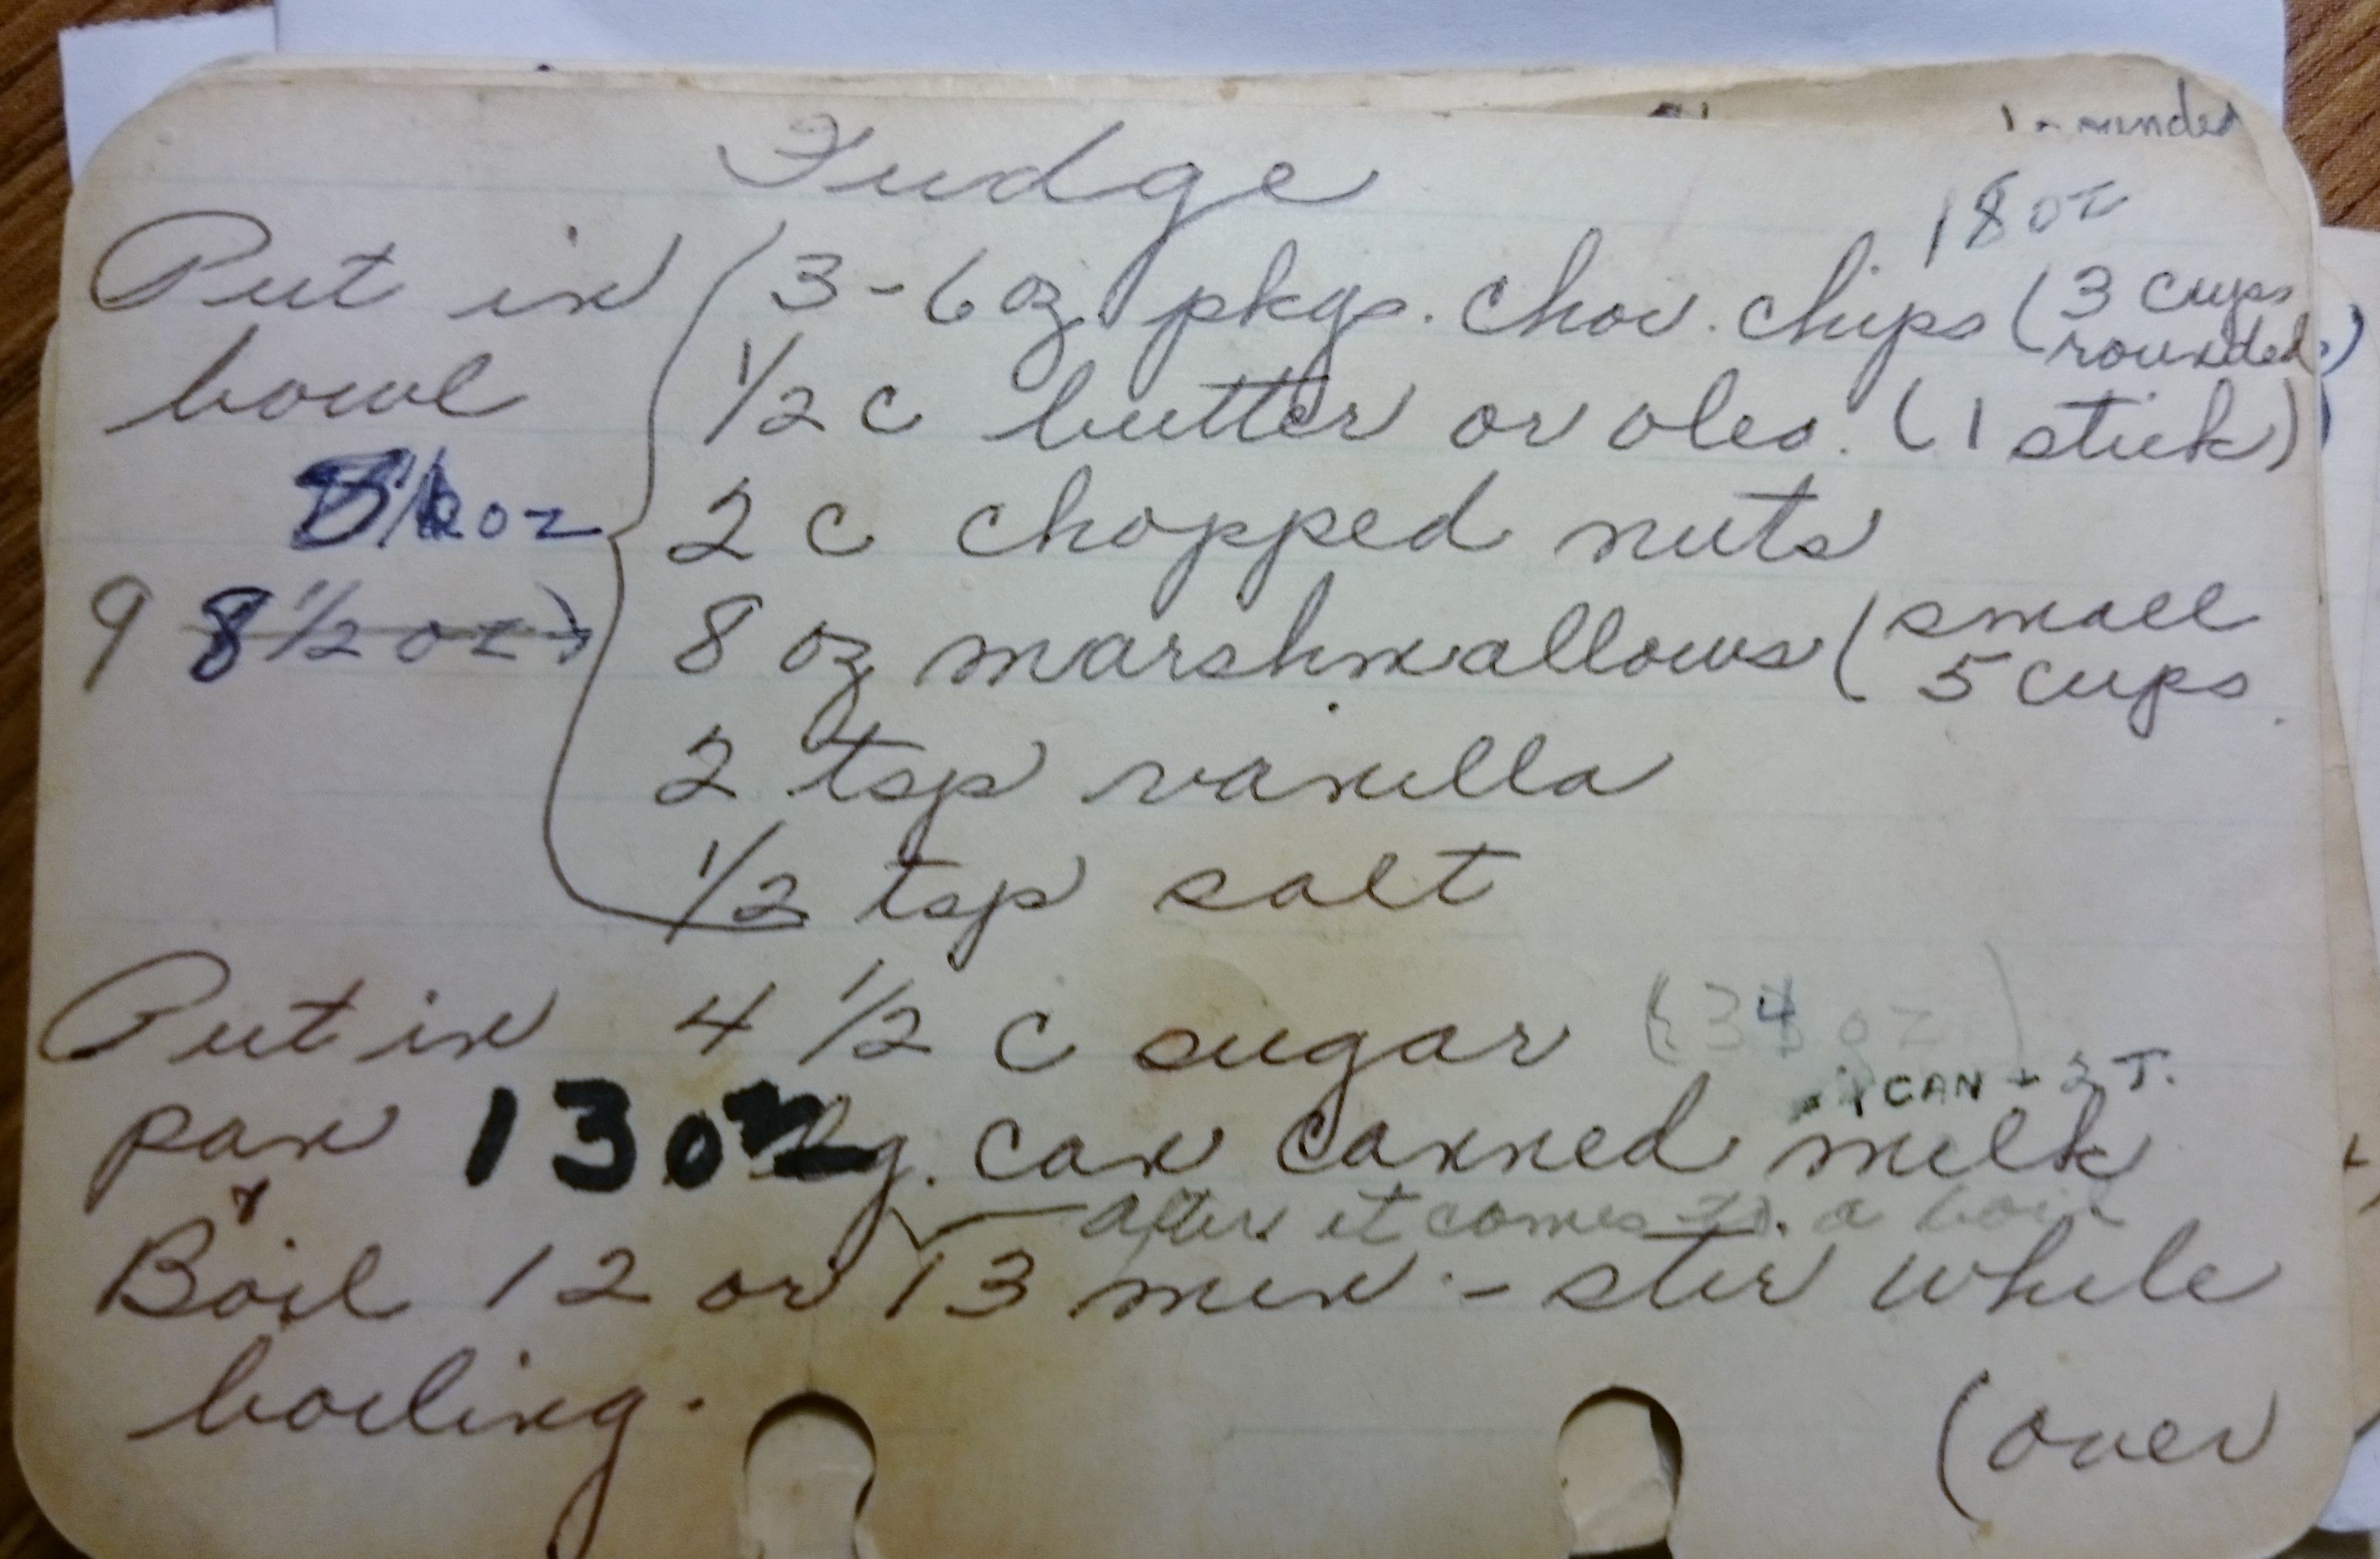 Fudge
rounded
18 oz
Put in 3-6 oz pkgs. choc. chips (3 cups
rounded)
bowl 1/2 c butter or oleo. (1 stick)
oz 2 c chopped nuts
9 8 1/2 oz 8 oz marshmallows (small
5 cups
2 tsp vanilla
1/2 tsp salt
Put in 4 1/2 c sugar (34 oz)
1 CAN + 2 T.
pan 13 oz lg. can canned milk
after it comes to a boil
Boil 12 or 13 min - stir while
boiling.
(over